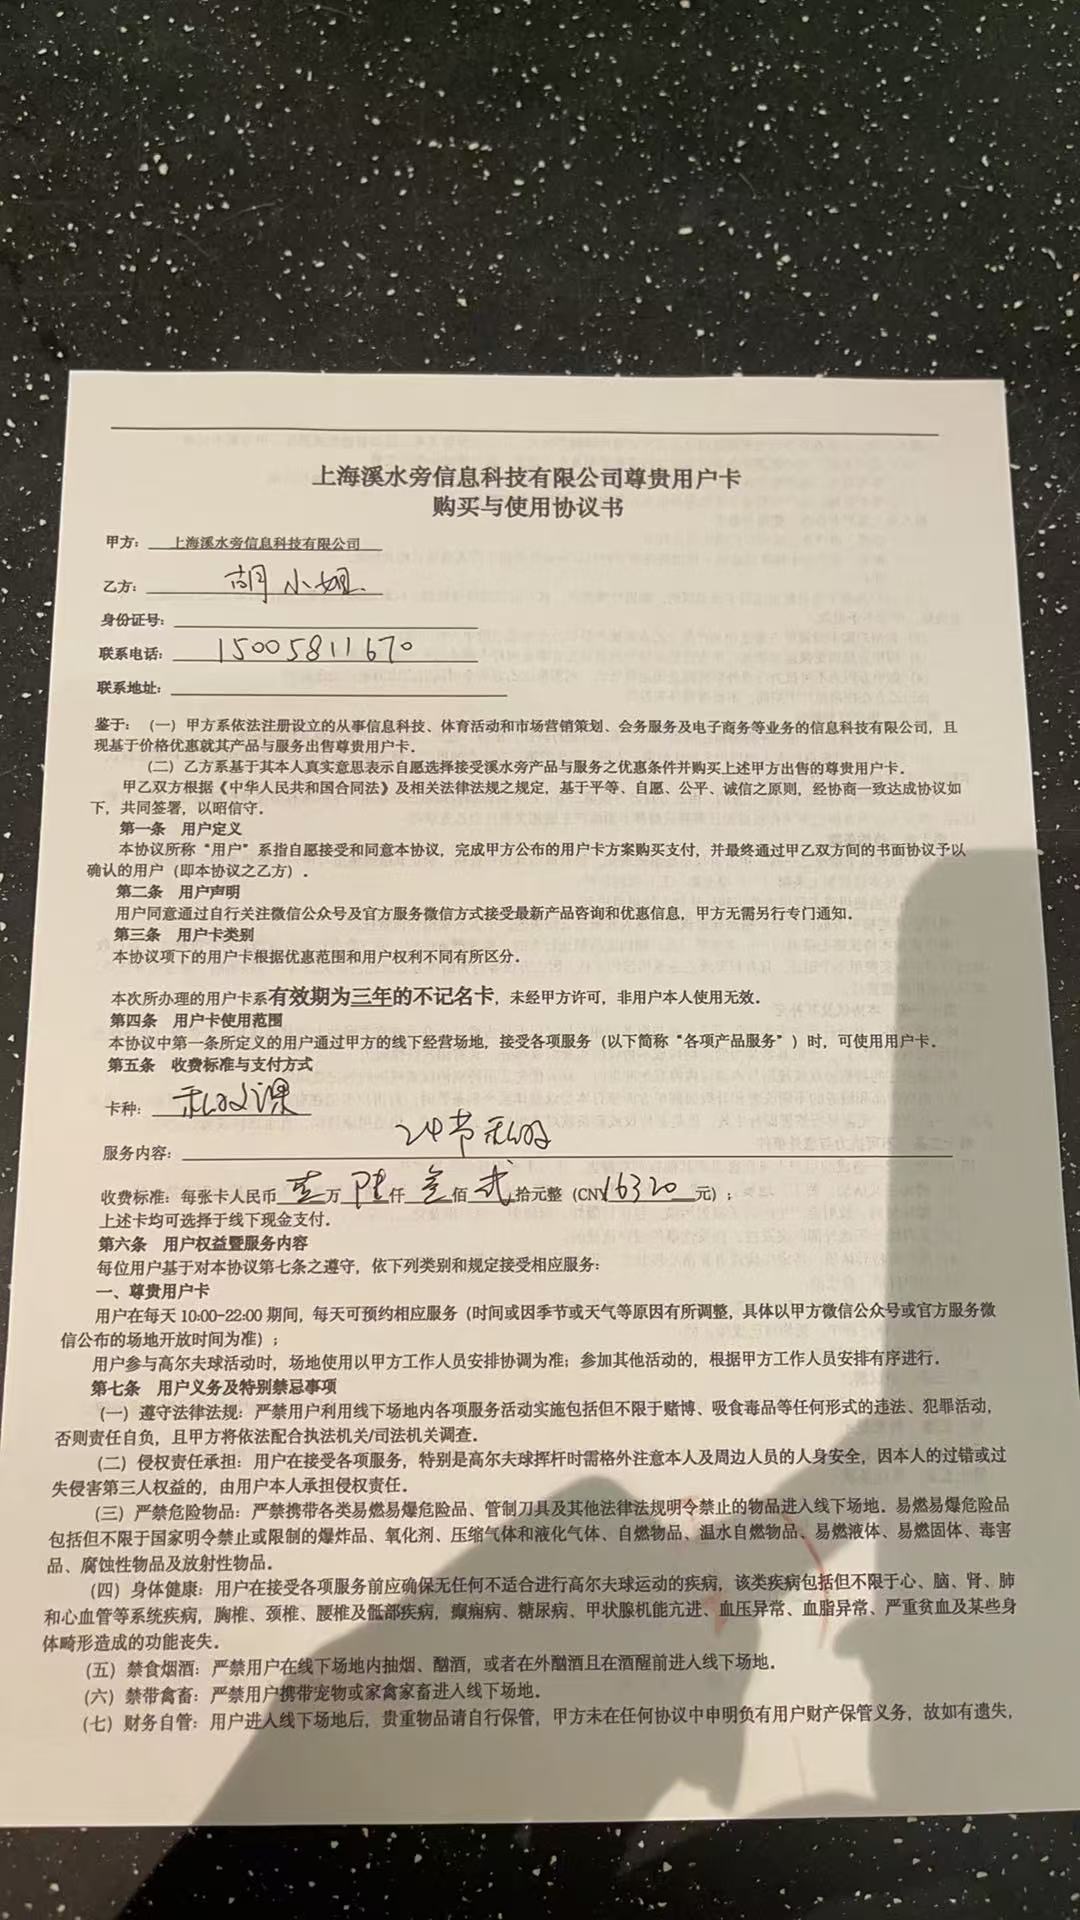 上海溪水旁信息科技有限公司尊贵用户卡
购买与使用协议书
甲方：上海溪水旁信息科技有限公司
乙方：胡小姐
身份证号：
联系电话：15005811670
联系地址：
鉴于：（一）甲方系依法注册设立的从事信息科技、体育活动和市场营销策划、会务服务及电子商务等业务的信息科技有限公司，且
现基于价格优惠就其产品与服务出售尊贵用户卡．
（二）乙方系基于其本人真实意思表示自愿选择接受溪水旁产品与服务之优惠条件并购买上述甲方出售的尊贵用户卡．
甲乙双方根据《中华人民共和国合同法》及相关法律法规之规定，基于平等、自愿、公平、诚信之原则，经协商一致达成协议如
下，共同签署，以昭信守．
第一条 用户定义
本协议所称“用户”系指自愿接受和同意本协议，完成甲方公布的用户卡方案购买支付，并最终通过甲乙双方间的书面协议予以
确认的用户（即本协议之乙方）．
第二条 用户声明
用户同意通过自行关注微信公众号及官方服务微信方式接受最新产品咨询和优惠信息，甲方无需另行专门通知．
第三条 用户卡类别
本协议项下的用户卡根据优惠范围和用户权利不同有所区分．
本次所办理的用户卡系有效期为三年的不记名卡，未经甲方许可，非用户本人使用无效．
第四条 用户卡使用范围
本协议中第一条所定义的用户通过甲方的线下经营场地，接受各项服务（以下简称“各项产品服务”）时，可使用用户卡．
第五条 收费标准与支付方式
卡种：私教课
服务内容：24节私教
收费标准：每张卡人民币 壹 万 陆 仟 叁 佰 贰 拾元整（CNY16320元）；
上述卡均可选择于线下现金支付．
第六条 用户权益暨服务内容
每位用户基于对本协议第七条之遵守，依下列类别和规定接受相应服务：
一、尊贵用户卡
用户在每天 10:00-22:00 期间，每天可预约相应服务（时间或因季节或天气等原因有所调整，具体以甲方微信公众号或官方服务微
信公布的场地开放时间为准）；
用户参与高尔夫球活动时，场地使用以甲方工作人员安排协调为准；参加其他活动的，根据甲方工作人员安排有序进行．
第七条 用户义务及特别禁忌事项
（一）遵守法律法规：严禁用户利用线下场地内各项服务活动实施包括但不限于赌博、吸食毒品等任何形式的违法、犯罪活动，
否则责任自负，且甲方将依法配合执法机关/司法机关调查．
（二）侵权责任承担：用户在接受各项服务，特别是高尔夫球挥杆时需格外注意本人及周边人员的人身安全，因本人的过错或过
失侵害第三人权益的，由用户本人承担侵权责任．
（三）严禁危险物品：严禁携带各类易燃易爆危险品、管制刀具及其他法律法规明令禁止的物品进入线下场地．易燃易爆危险品
包括但不限于国家明令禁止或限制的爆炸品、氧化剂、压缩气体和液化气体、自燃物品、温水自燃物品、易燃液体、易燃固体、毒害
品、腐蚀性物品及放射性物品．
（四）身体健康：用户在接受各项服务前应确保无任何不适合进行高尔夫球运动的疾病，该类疾病包括但不限于心、脑、肾、肺
和心血管等系统疾病，胸椎、颈椎、腰椎及骶部疾病，癫痫病、糖尿病、甲状腺机能亢进、血压异常、血脂异常、严重贫血及某些身
体畸形造成的功能丧失．
（五）禁食烟酒：严禁用户在线下场地内抽烟、酗酒，或者在外酗酒且在酒醒前进入线下场地．
（六）禁带禽畜：严禁用户携带宠物或家禽家畜进入线下场地．
（七）财务自管：用户进入线下场地后，贵重物品请自行保管，甲方未在任何协议中申明负有用户财产保管义务，故如有遗失，